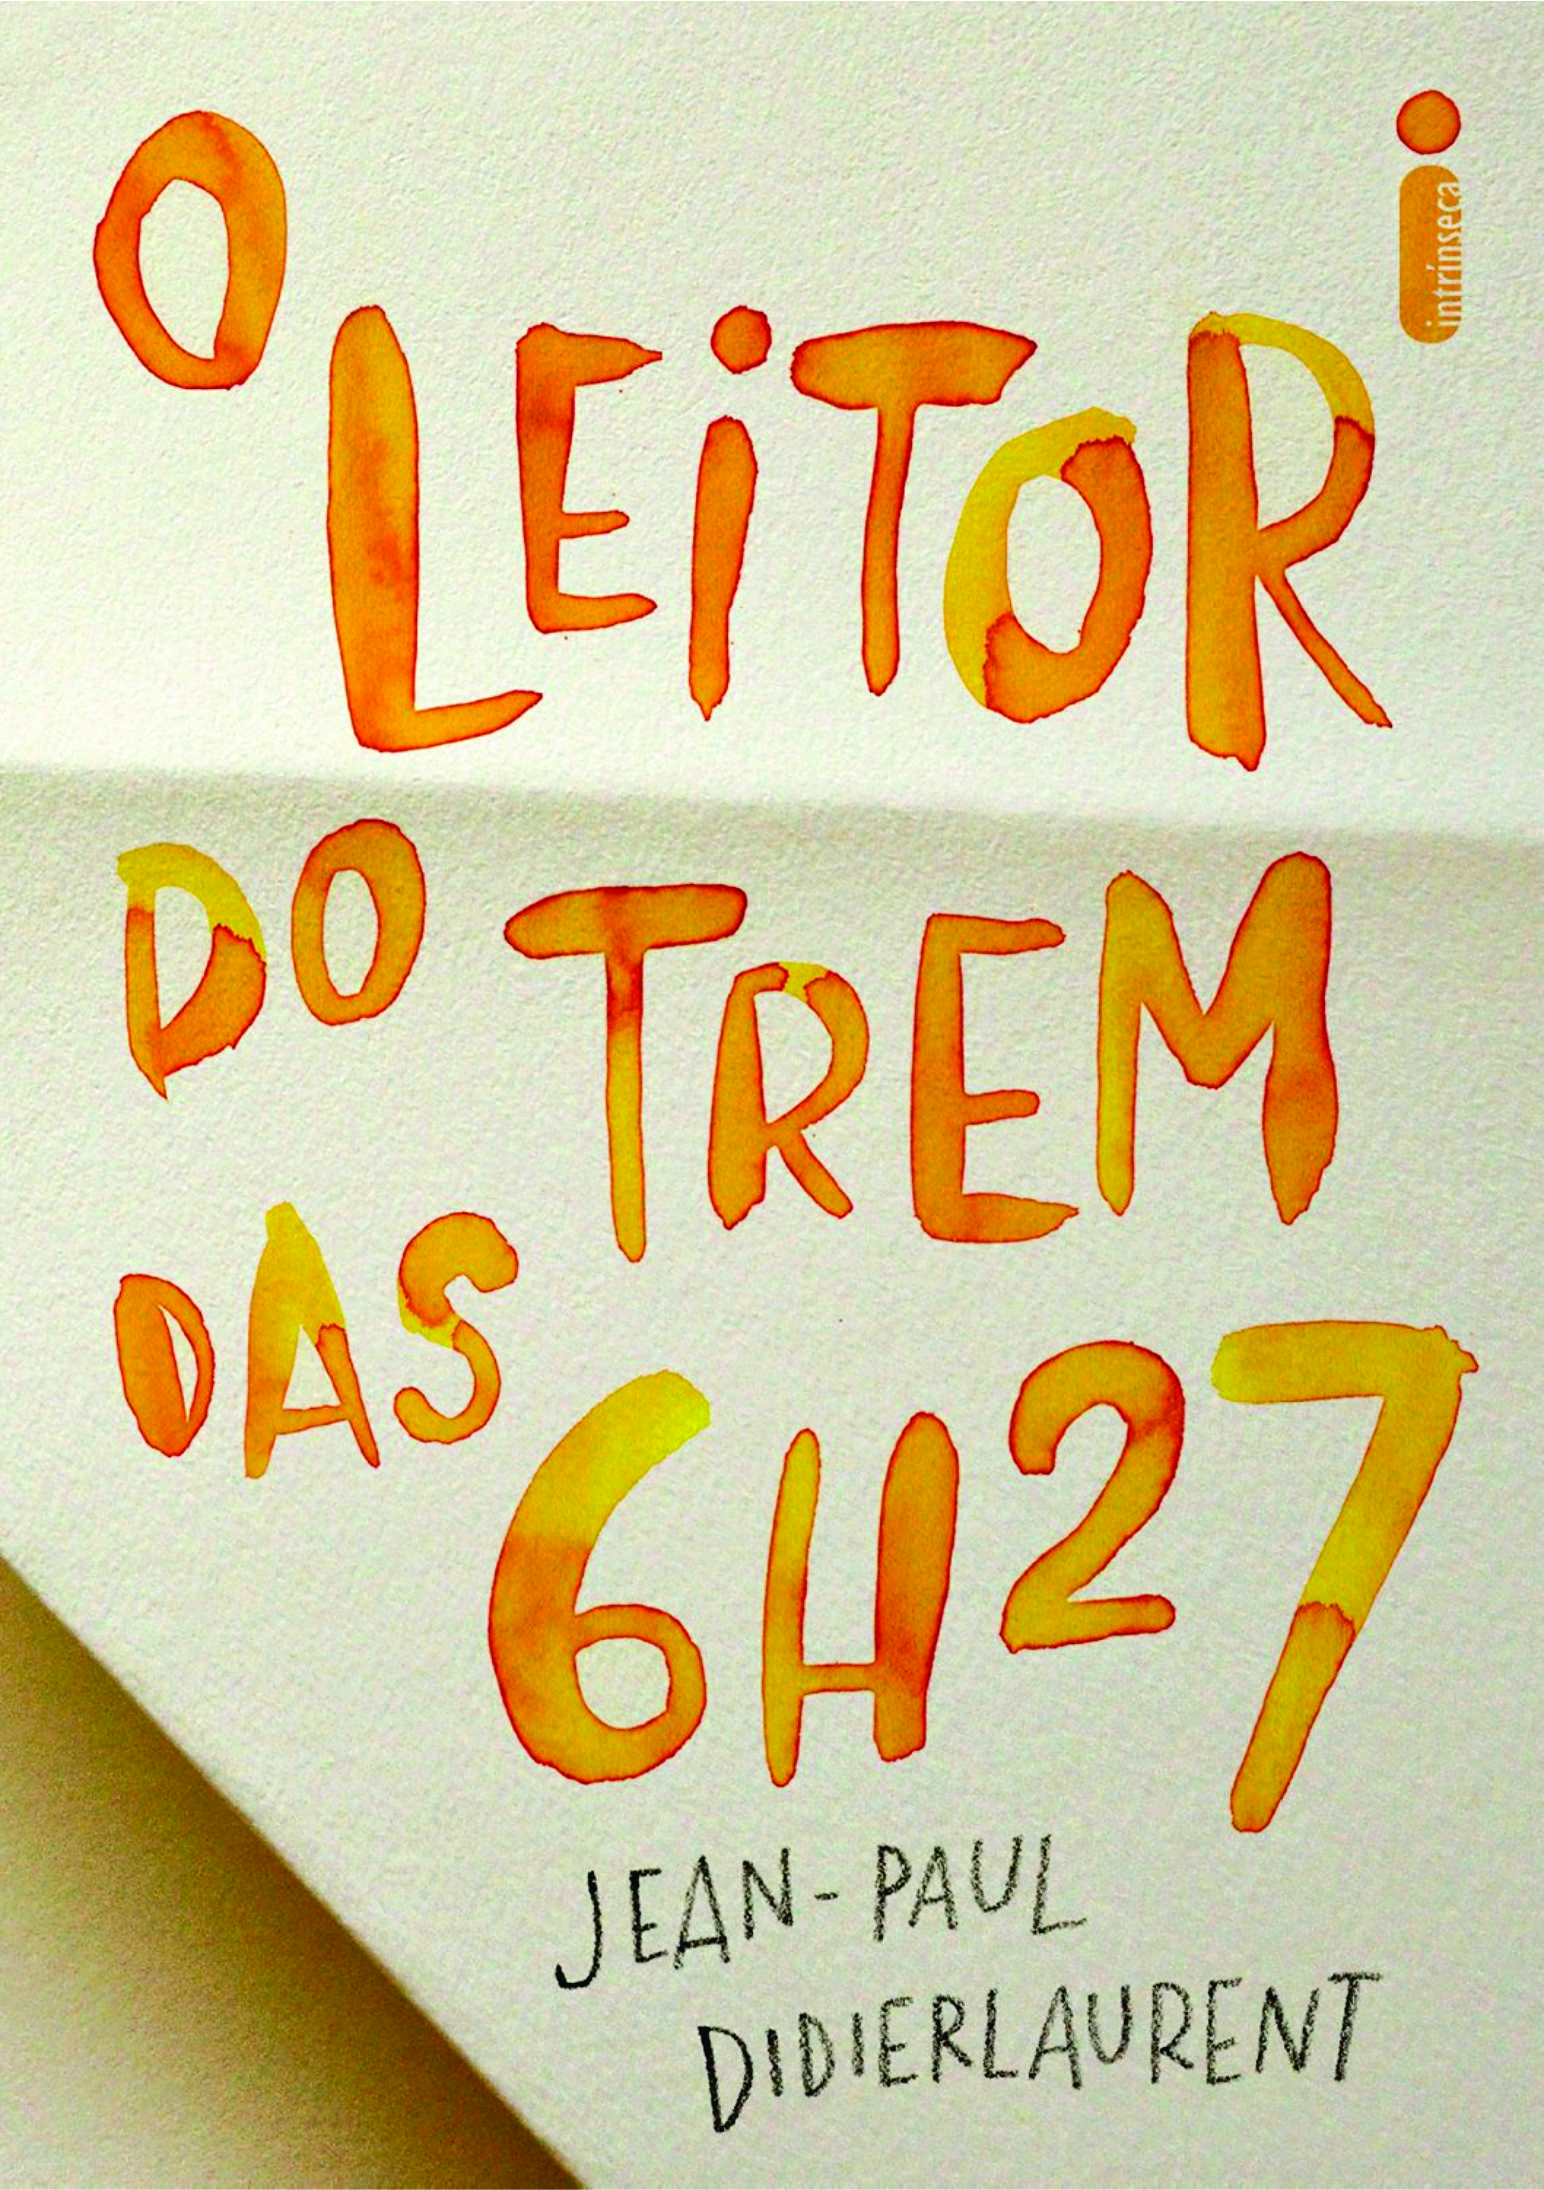 O
LEiTOR
DO TREM
DAS 6H27
JEAN-PAUL
DIDIERLAURENT
intrínseca